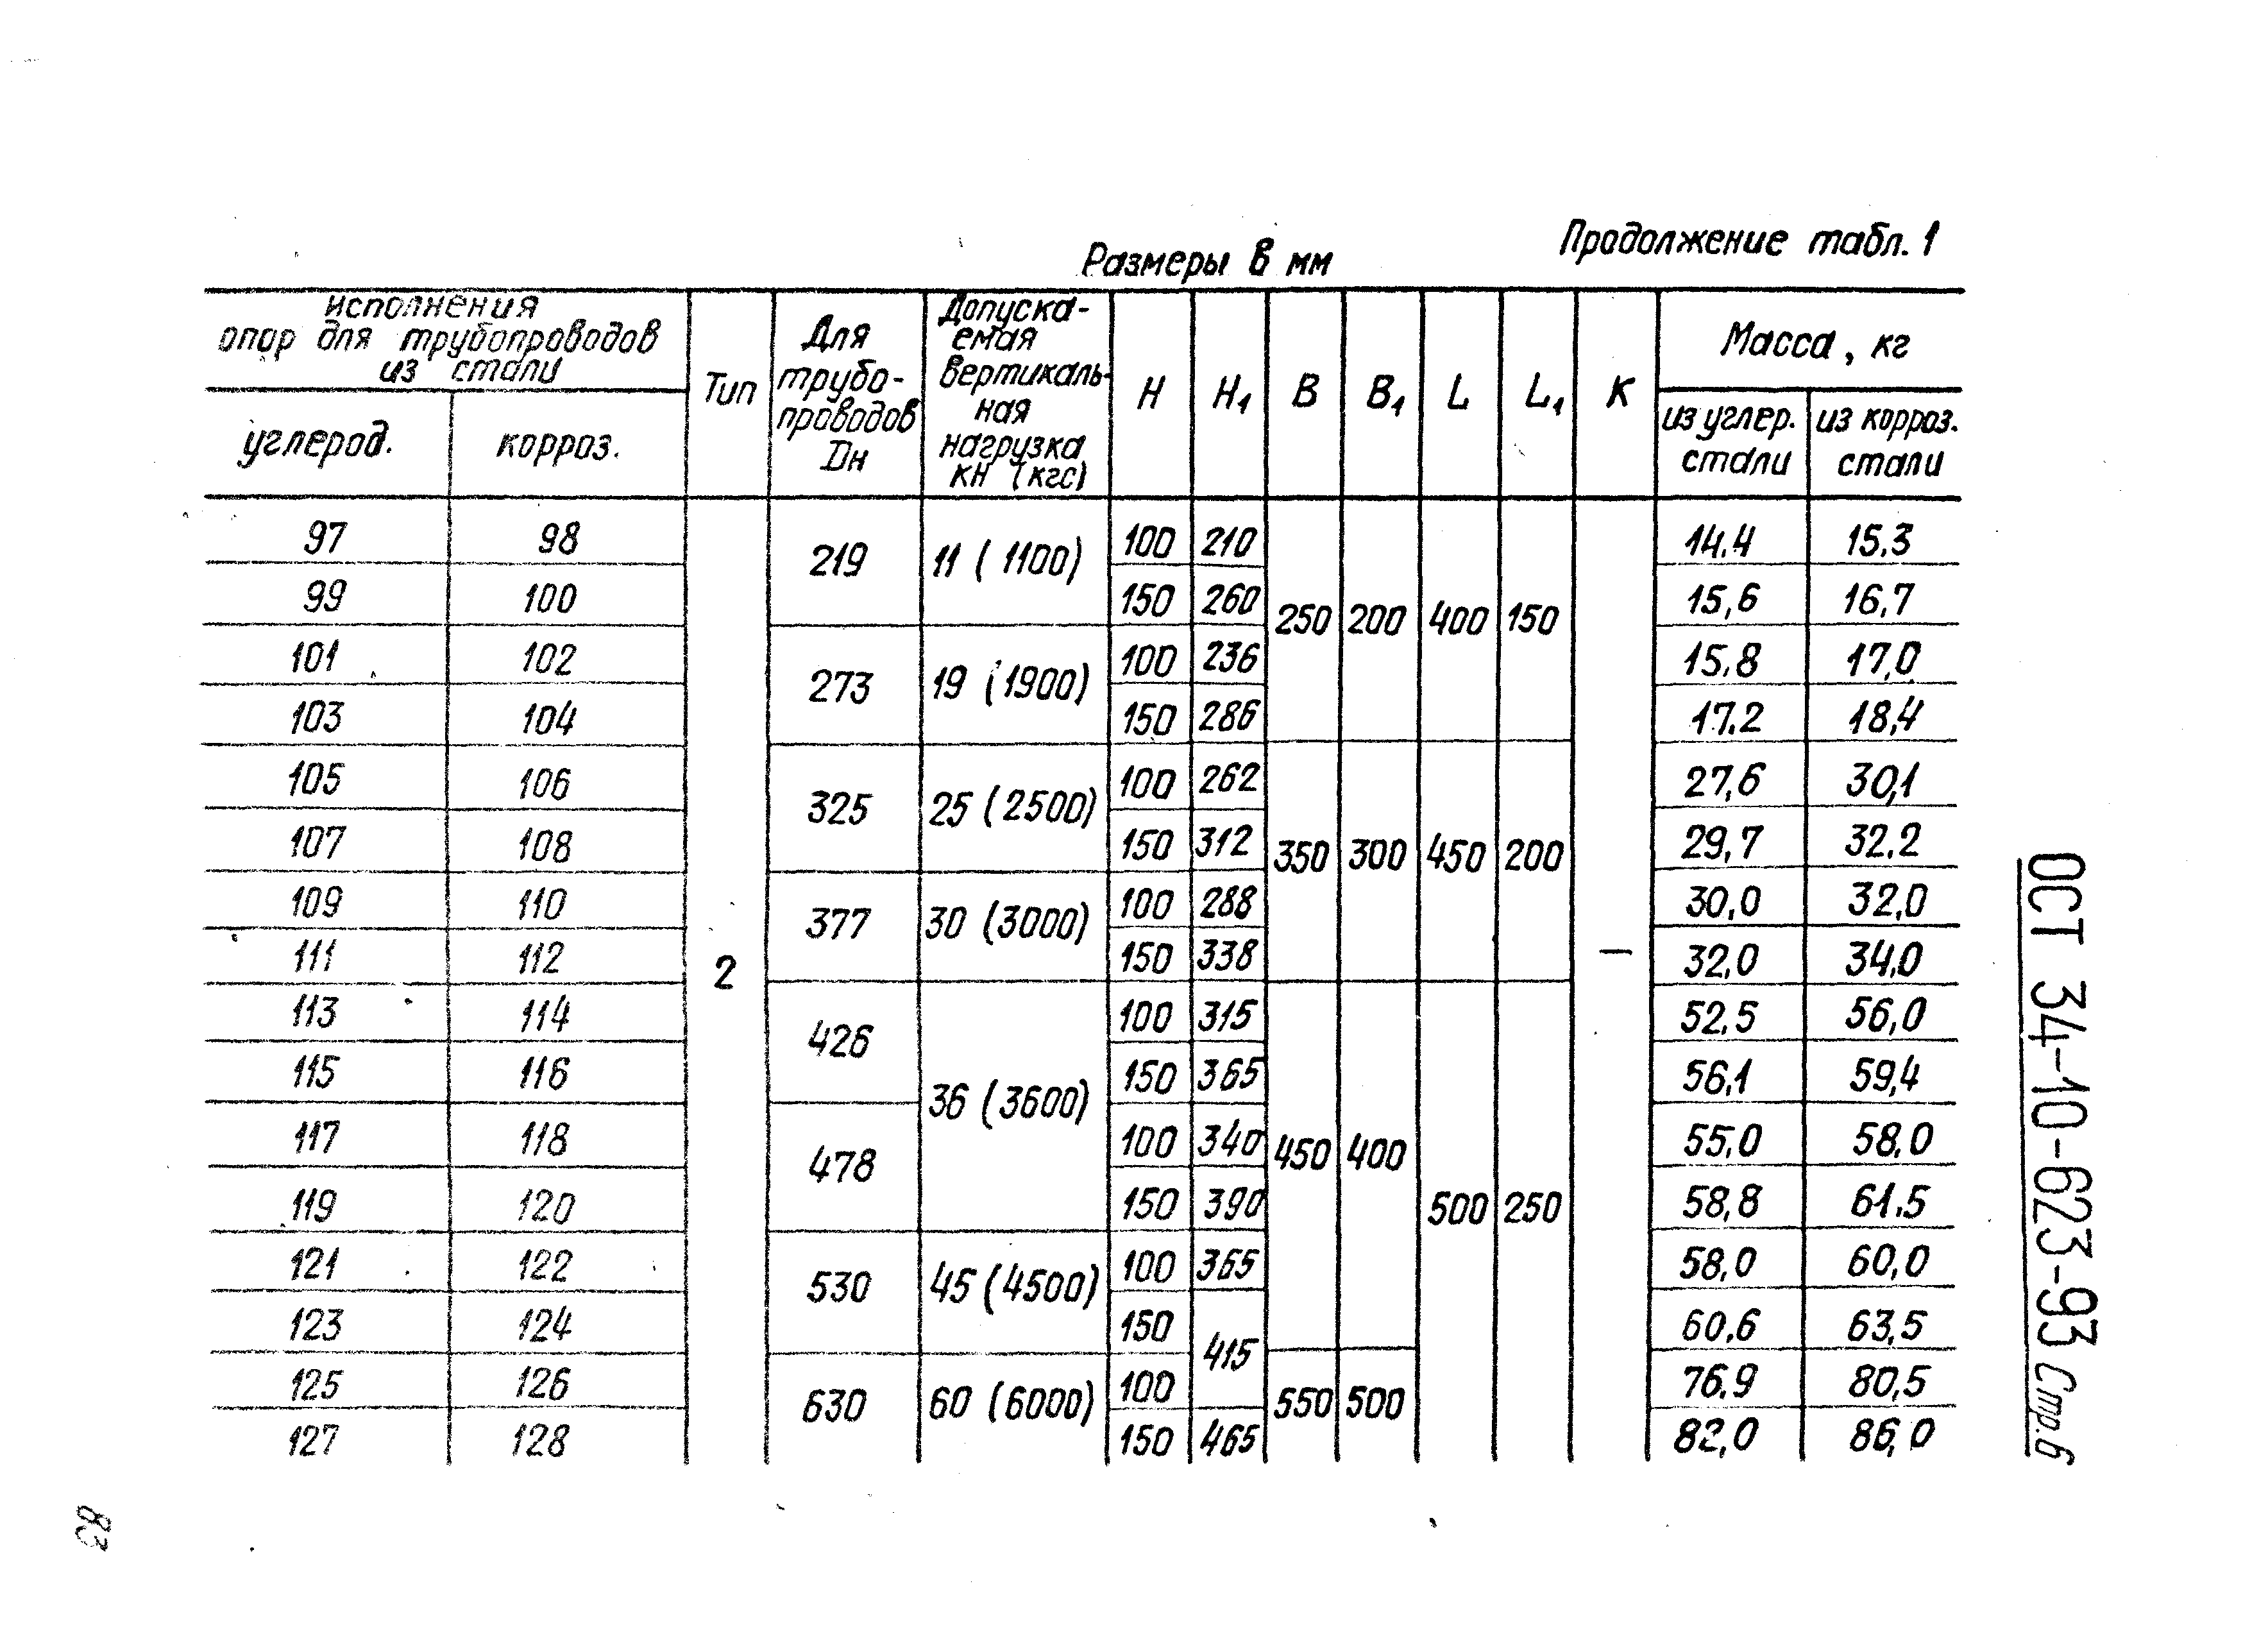 Продолжение табл. 1
Размеры в мм
исполнения опор для трубопроводов из стали | Тип | Для трубо-проводов Dн | Допуска-емая вертикаль-ная нагрузка кН (кгс) | H | H₁ | B | B₁ | L | L₁ | K | Масса, кг
углерод. | корроз. | из углер. стали | из корроз. стали
97 98 2 219 11 (1100) 100 210 250 200 400 150 — 14.4 15.3
99 100 150 260 15,6 16,7
101 102 273 19 (1900) 100 236 15.8 17,0
103 104 150 286 17.2 18,4
105 106 325 25 (2500) 100 262 350 300 450 200 27,6 30,1
107 108 150 312 29,7 32,2
109 110 377 30 (3000) 100 288 30,0 32,0
111 112 150 338 32,0 34,0
113 114 426 36 (3600) 100 315 450 400 500 250 52,5 56,0
115 116 150 365 56,1 59,4
117 118 478 100 340 55,0 58,0
119 120 150 390 58,8 61.5
121 122 530 45 (4500) 100 365 58,0 60,0
123 124 150 415 60.6 63,5
125 126 630 60 (6000) 100 550 500 76.9 80,5
127 128 150 465 82,0 86,0
ОСТ 34-10-623-93 Стр.6
83